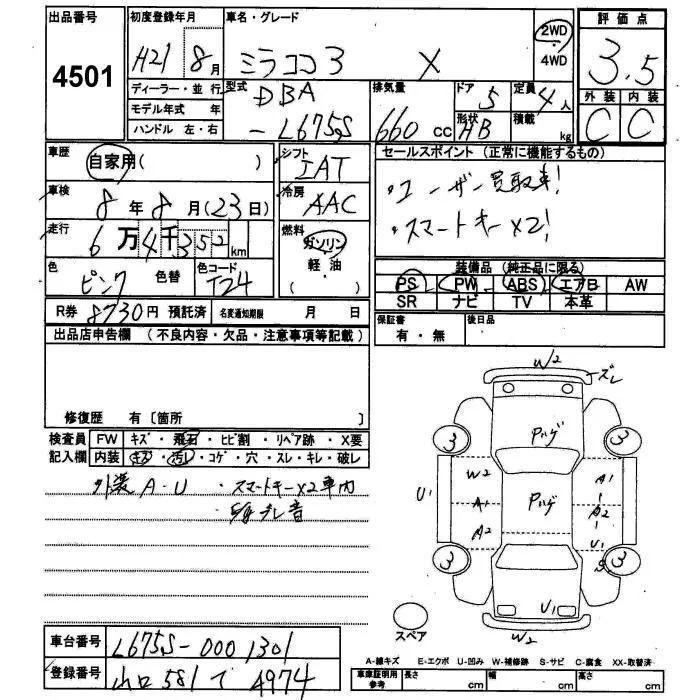 出品番号
4501
初度登録年月
H21 8月
ディーラー・並行
モデル年式 年
ハンドル 左・右
車名・グレード
ミラココア X
2WD
・
4WD
型式
DBA
-L675S
排気量
660 cc
ドア 5
形状 HB
定員 4人
積載 kg
評価点
3.5
外装 内装
C C
車歴
自家用( )
車検
8年8月(23日)
走行
6万4千352km
色
ピンク 色替
色コード
T24
シフト
IAT
冷房
AAC
燃料
ガソリン
軽・油
( )
セールスポイント (正常に機能するもの)
・ユーザー買取車!
・スマートキーX2!
装備品 (純正品に限る)
PS PW ABS エアB AW
SR ナビ TV 本革
R券 8730円 預託済 名変通知期限 月 日
保証書 有・無
後日品
出品店申告欄 (不良内容・欠品・注意事項等記載)
修復歴 有〔箇所 〕
検査員 FW キズ・飛石・ヒビ割・リペア跡・X要
記入欄 内装 キズ・汚レ・コゲ・穴・スレ・キレ・破レ
外装A-U ・スマートキーX2車内
ブレ音
W2
ズレ
3 Pハゲ 3
W2 A1
U1 A1 Pハゲ A2
A2 U1
3 S 3
U1
W2
スペア
車台番号 L675S-0001301
登録番号 山口581 て 4974
A-線キズ E-エクボ U-凹み W-補修跡 S-サビ C-腐食 XX-取替済
車庫証明用参考 長さ cm 幅 cm 高さ cm